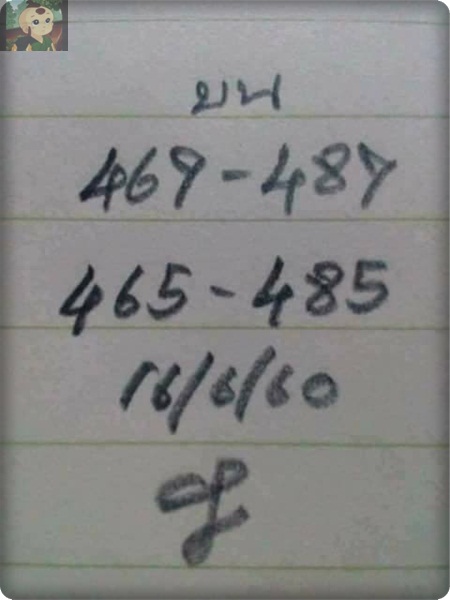 บน
469 - 487
465 - 485
16/6/60